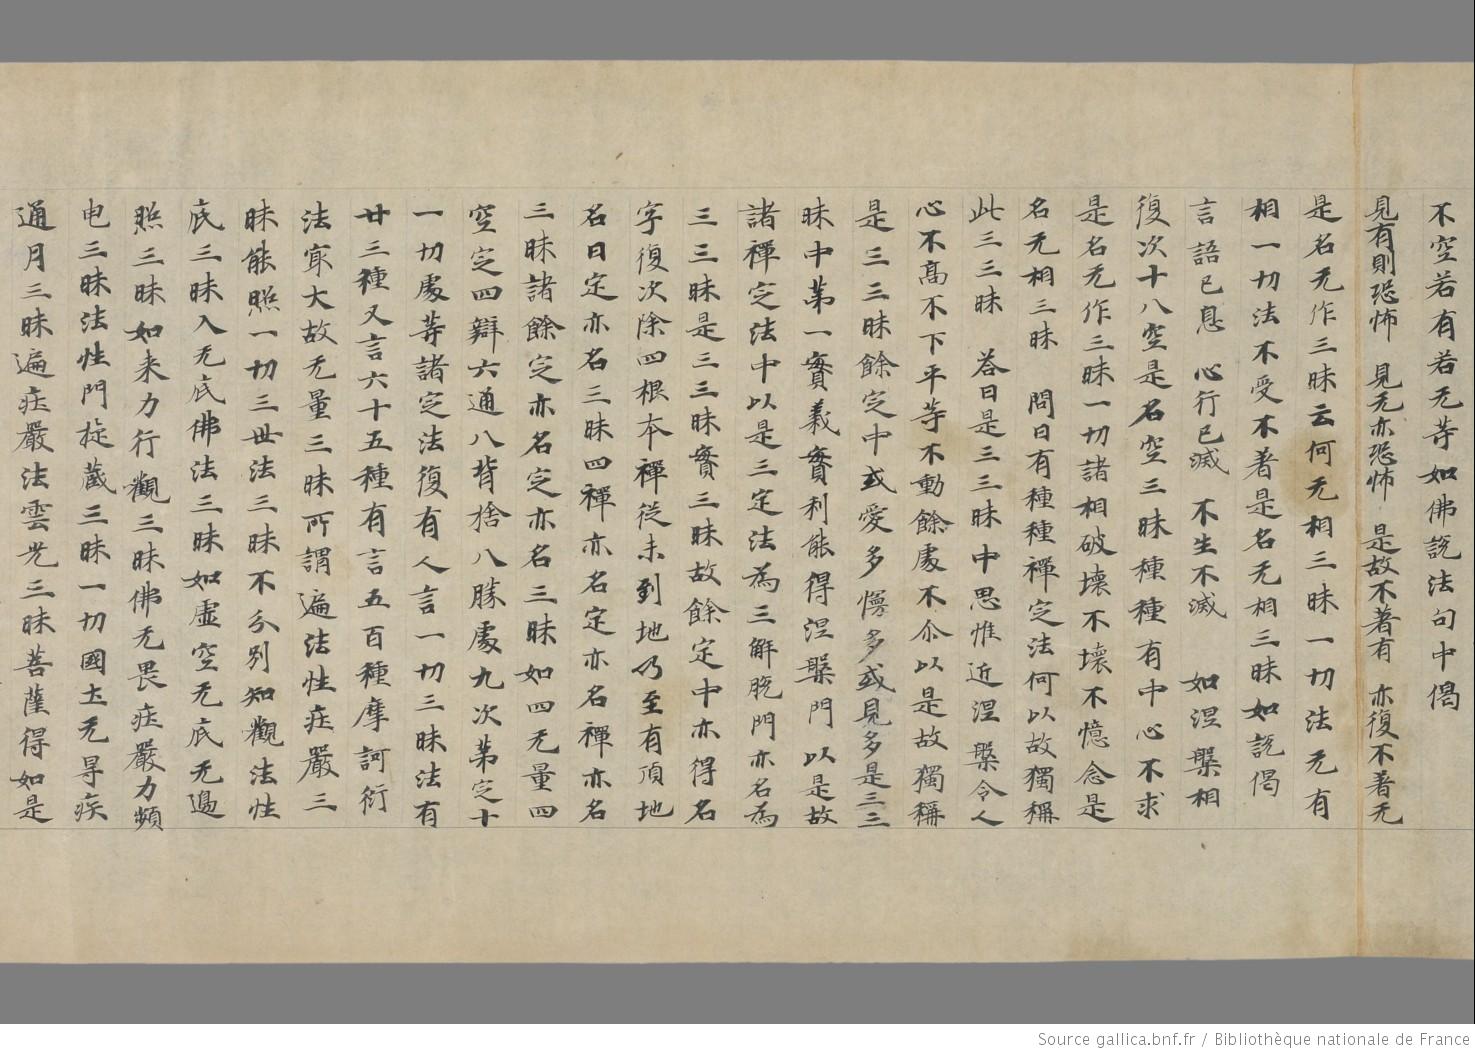 不空若有若无等如佛說法句中偈
見有則恐怖 見无亦恐怖 是故不著有 亦復不著无
是名无作三昧云何无相三昧一切法无有
相一切法不受不著是名无相三昧如說偈
言語已息 心行已滅 不生不滅 如涅槃相
復次十八空是名空三昧種種有中心不求
是名无作三昧一切諸相破壞不壞不憶念是
名无相三昧 問曰有種種禪定法何以故獨稱
此三三昧 荅曰是三三昧中思惟近涅槃令人
心不高不下平等不動餘處不尒以是故獨稱
是三三昧餘定中或愛多慢多或見多是三三
昧中第一實義實利能得涅槃門以是故
諸禪定法中以是三定法為三解脫門亦名為
三三昧是三三昧實三昧故餘定中亦得名
字復次除四根本禪從未到地乃至有頂地
名曰定亦名三昧四禪亦名定亦名禪亦名
三昧諸餘定亦名定亦名三昧如四无量四
空定四辯六通八背捨八勝處九次第定十
一切處等諸定法復有人言一切三昧法有
廿三種又言六十五種有言五百種摩訶衍
法㝡大故无量三昧所謂遍法性庄嚴三
昧能照一切三世法三昧不分別知觀法性
底三昧入无底佛法三昧如虛空无底无邊
照三昧如来力行觀三昧佛无畏庄嚴力頻
电三昧法性門旋藏三昧一切國土无导疾
通月三昧遍庄嚴法雲光三昧菩薩得如是
Source gallica.bnf.fr / Bibliothèque nationale de France